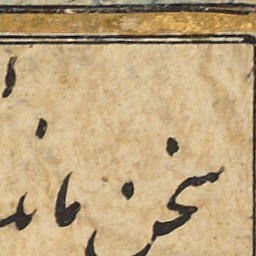 سخن ماند